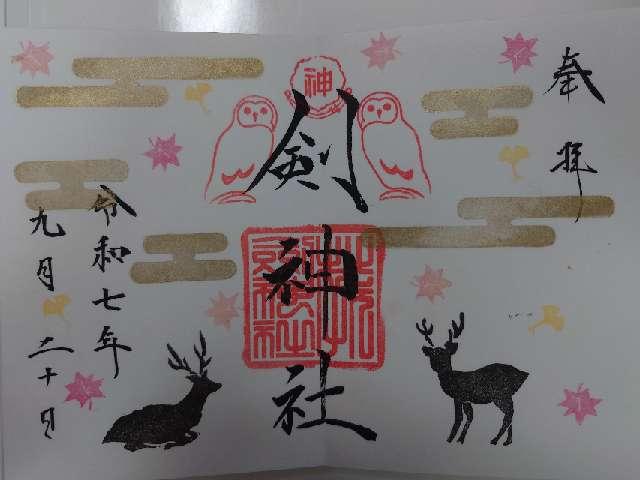 奉拝
八剣神社
神
令和七年
九月二十日